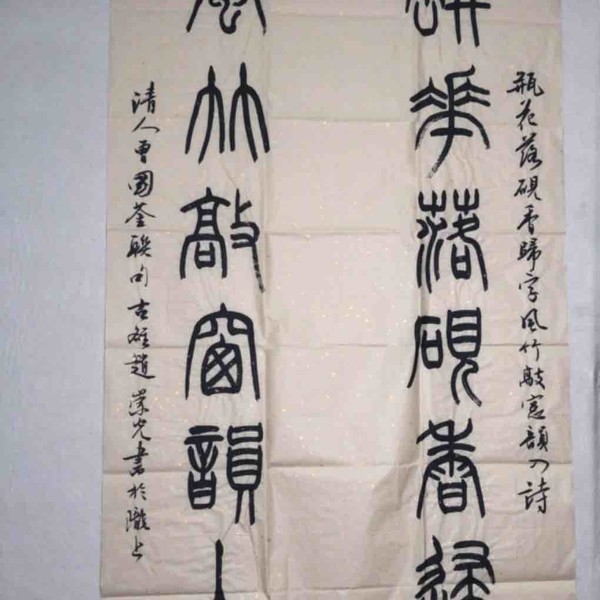 瓶花落硯香歸字風竹敲窗韻入詩
瓶花落硯香歸
風竹敲窗韻入
清人曾國荃聯句古雍趙崇光書於隴上